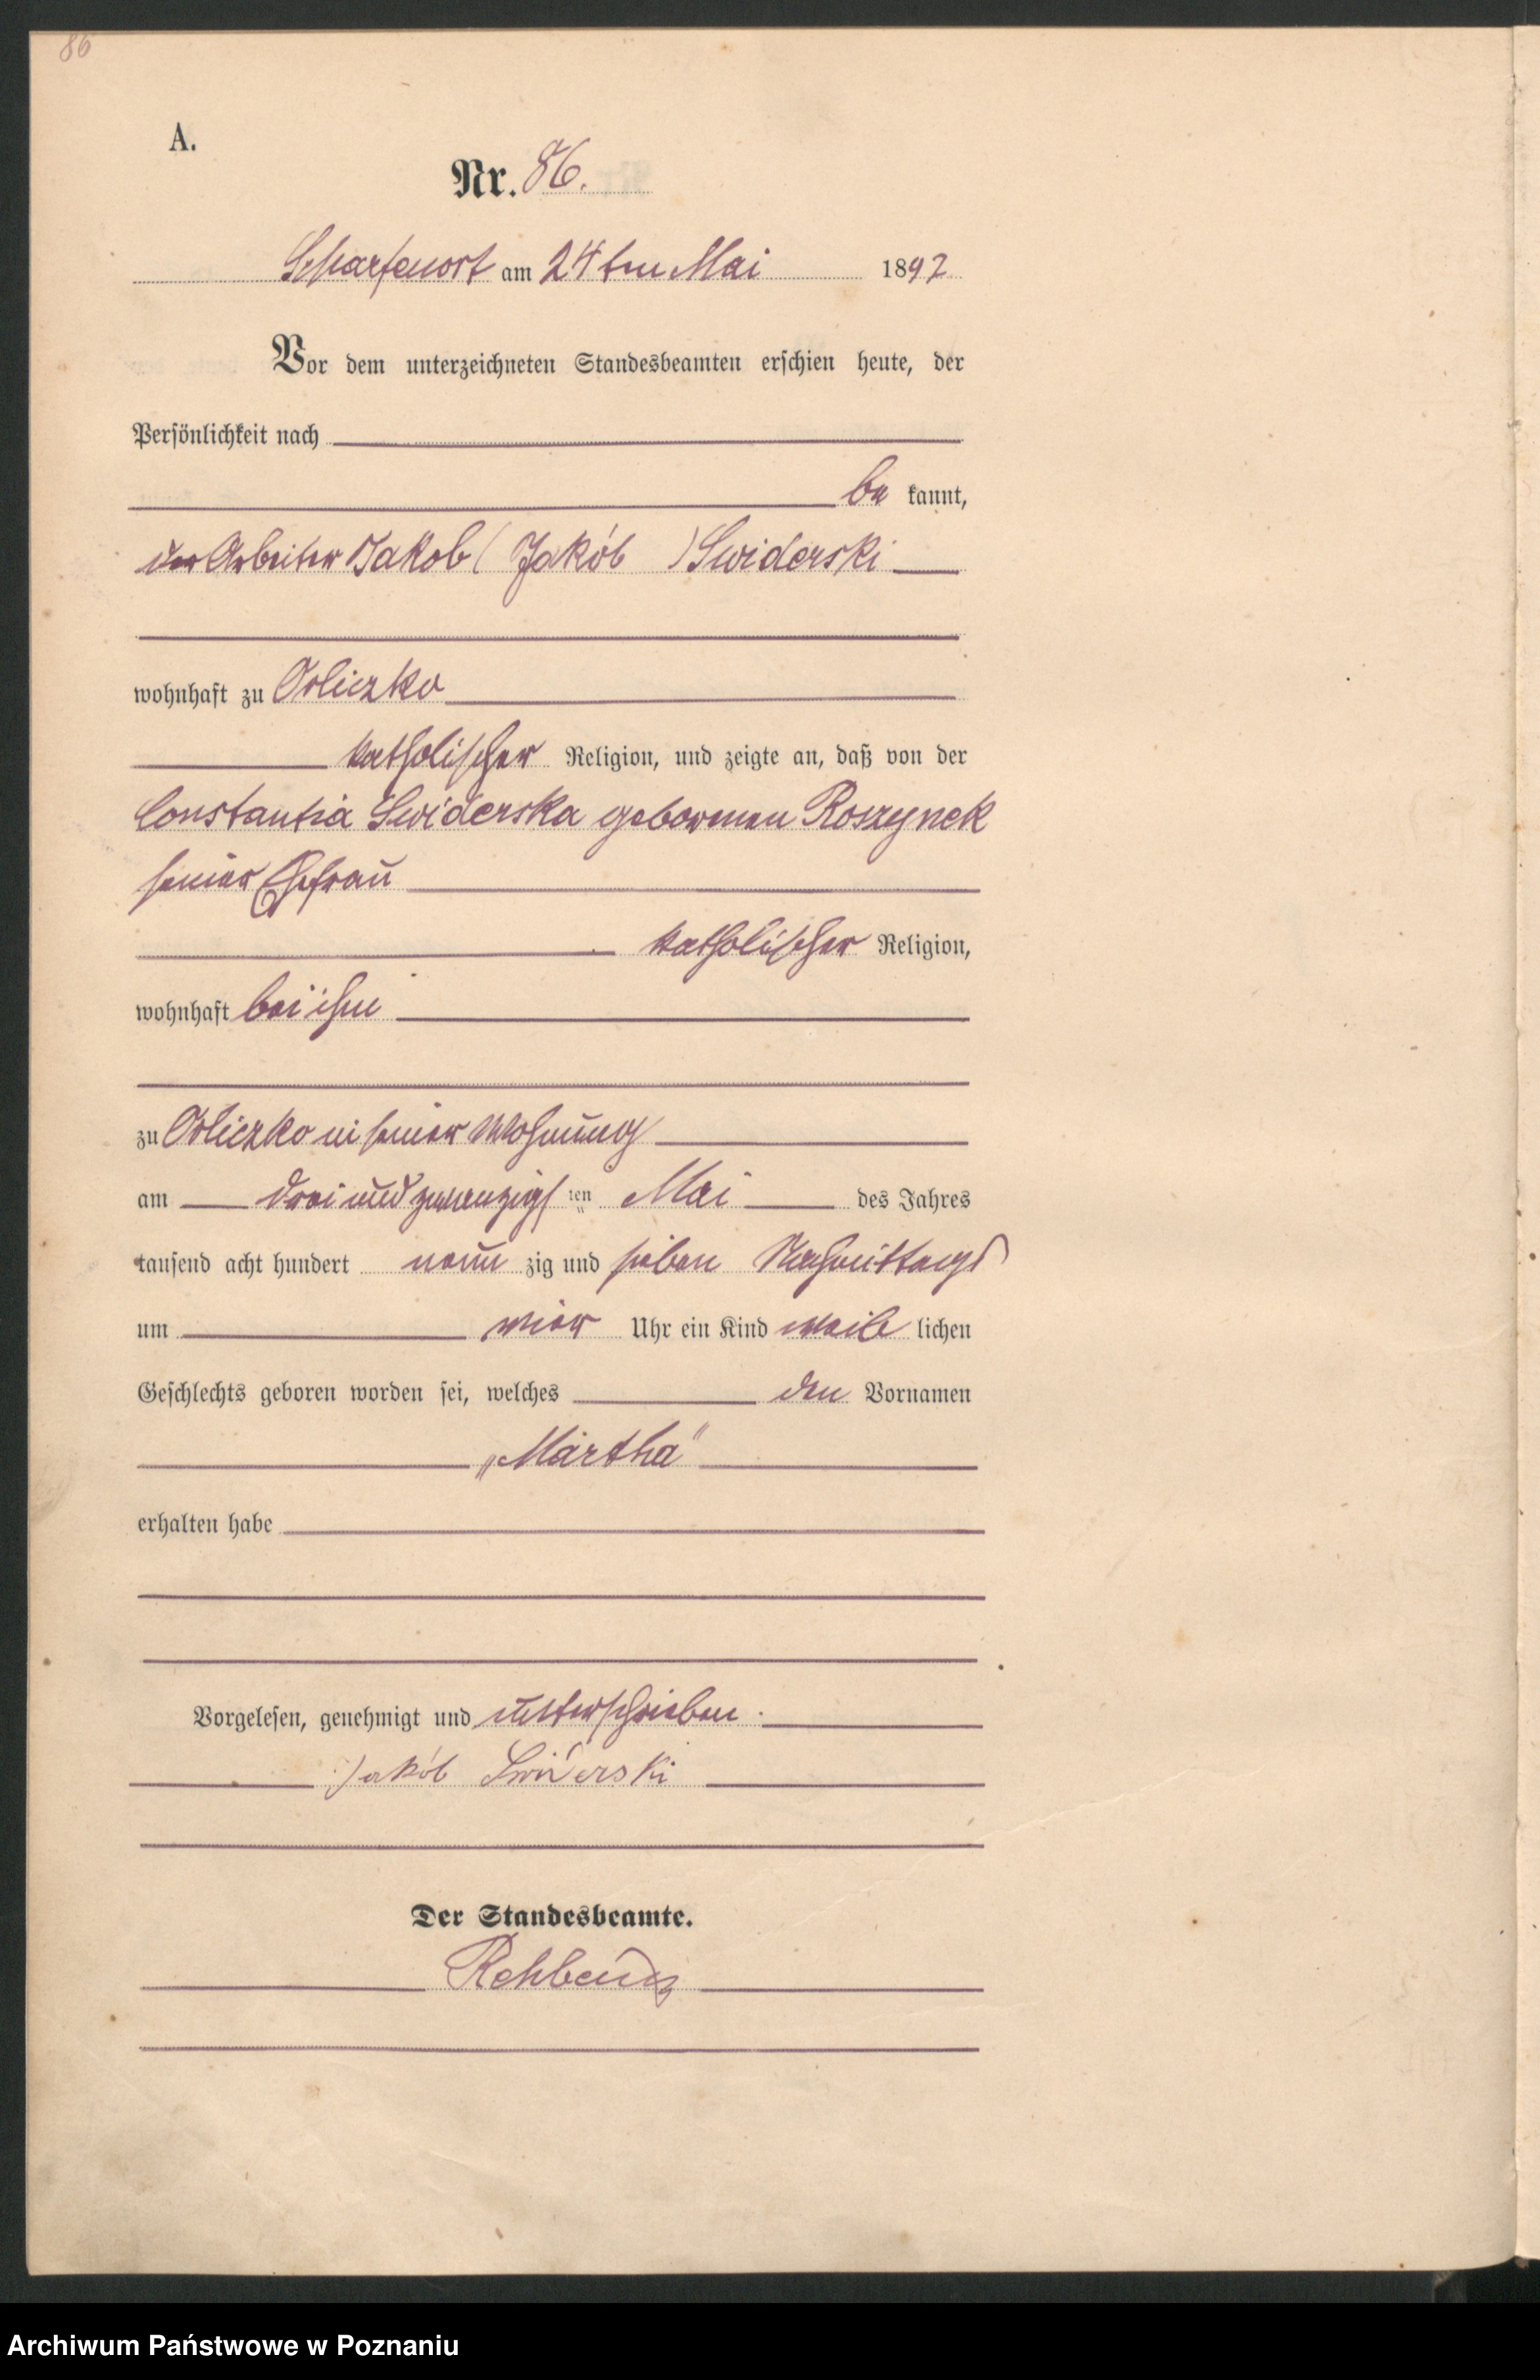 86
A.
Nr. 86.
Scharfenort am 24ten Mai 1897
Vor dem unterzeichneten Standesbeamten erschien heute, der
Persönlichkeit nach
be kannt,
der Arbeiter Jakob (Jakób) Swiderski
wohnhaft zu Orliczko
katholischer Religion, und zeigte an, daß von der
Constantia Swiderska geborenen Roszynek
seiner Ehefrau
katholischer Religion,
wohnhaft bei ihm
zu Orliczko in seiner Wohnung
am drei und zwanzigsten Mai des Jahres
tausend acht hundert neun zig und sieben Nachmittags
um vier Uhr ein Kind weib lichen
Geschlechts geboren worden sei, welches den Vornamen
„Martha“
erhalten habe
Vorgelesen, genehmigt und unterschrieben.
Jakób Swiderski
Der Standesbeamte.
Archiwum Państwowe w Poznaniu